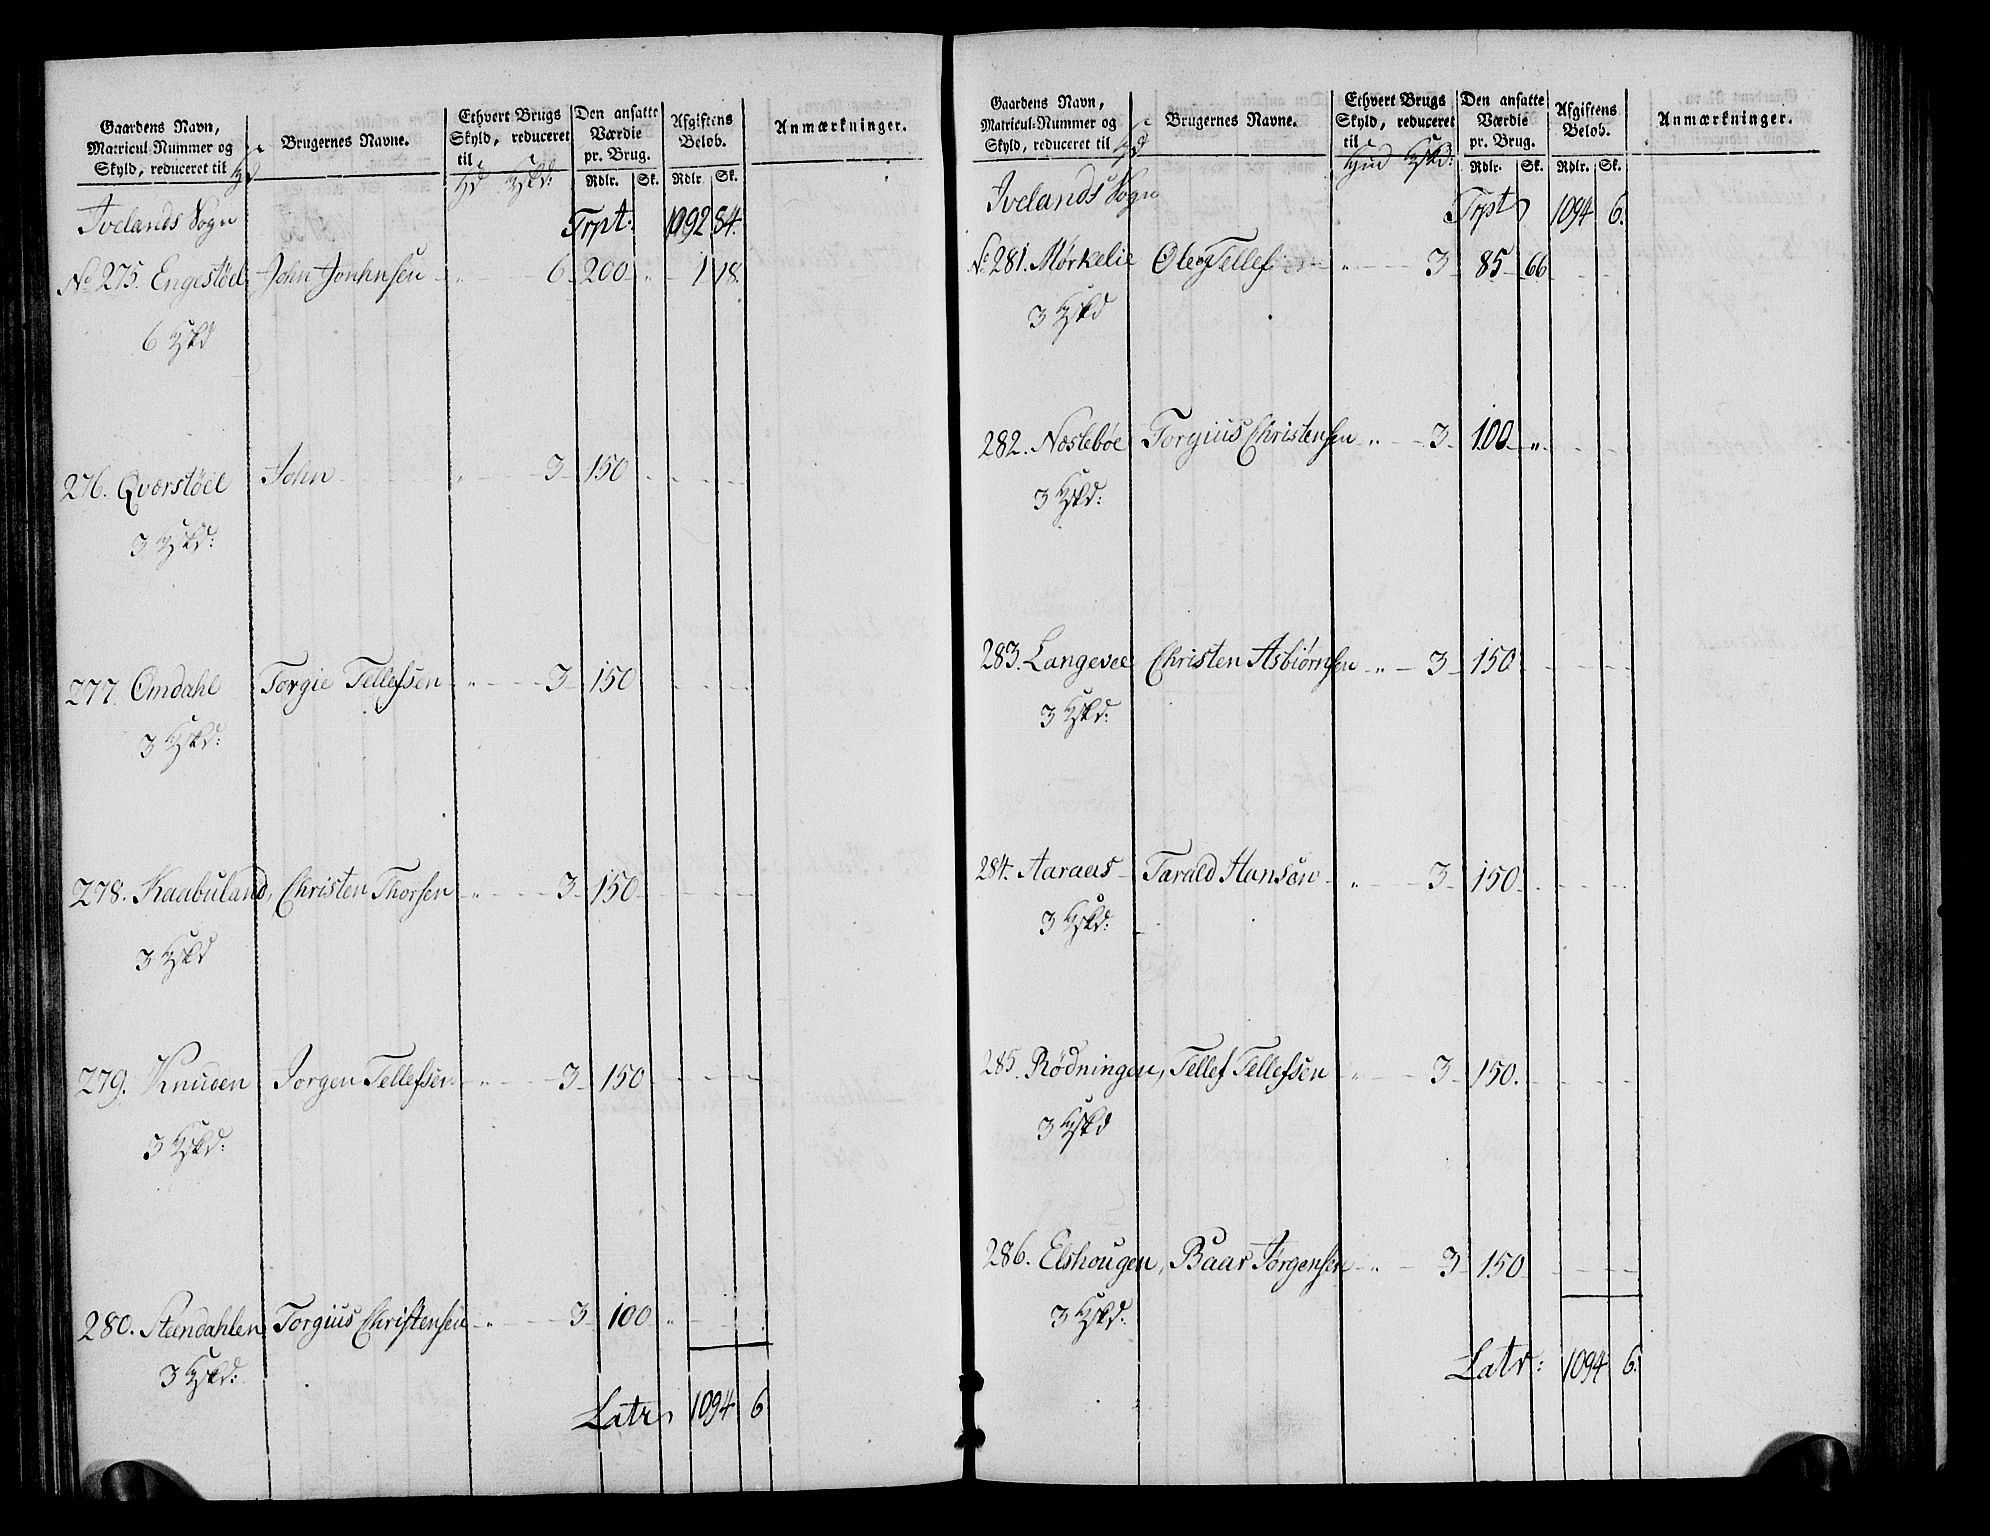 Gaardens Navn, Matricul-Nummer og Skyld, reduceret til | Brugernes Navne. | Ethvert Brugs Skyld, reduceret til | Den ansatte Værdie pr. Brug. Rdlr. Sk. | Afgiftens Belob. Rdlr. Sk. | Anmærkninger.
Ivelands Sogn Trpt: 1092 84.
No 275. Engestøel John Jonhnsen „ 6 200 „ 1 18.
6
276. Qværstøel John „ 3 150
3
277. Omdahl Torgie Tellefsen „ 3 150
3
278. Kaabuland, Christen Thorsen „ 3 150
3
279. Knuden Jorgen Tellefsen „ 3 150
3
280. Steendahlen Torgius Christensen „ 3 100 „
3
Latr 1094 6
Gaardens Navn, Matricul-Nummer og Skyld, reduceret til | Brugernes Navne. | Ethvert Brugs Skyld, reduceret til | Den ansatte Værdie pr. Brug. Rdlr. Sk. | Afgiftens Belob. Rdlr. Sk. | Anmærkninger.
Ivelands Sogn Trpt 1094 6.
No 281. Mørkelie Ole Tellef „ 3 85 66
3
282. Næslebøe Torgius Christensen „ 3 100 „
3
283. Langevee Christen Asbiørnsen „ 3 150
3
284. Aaraas Tarald Hansøn „ 3 150
3
285. Rødningen, Tellef Tellefsen „ 3 150.
3
286. Elshougen, Baar Jørgensen „ 3 150
3
Latr: 1094 6.